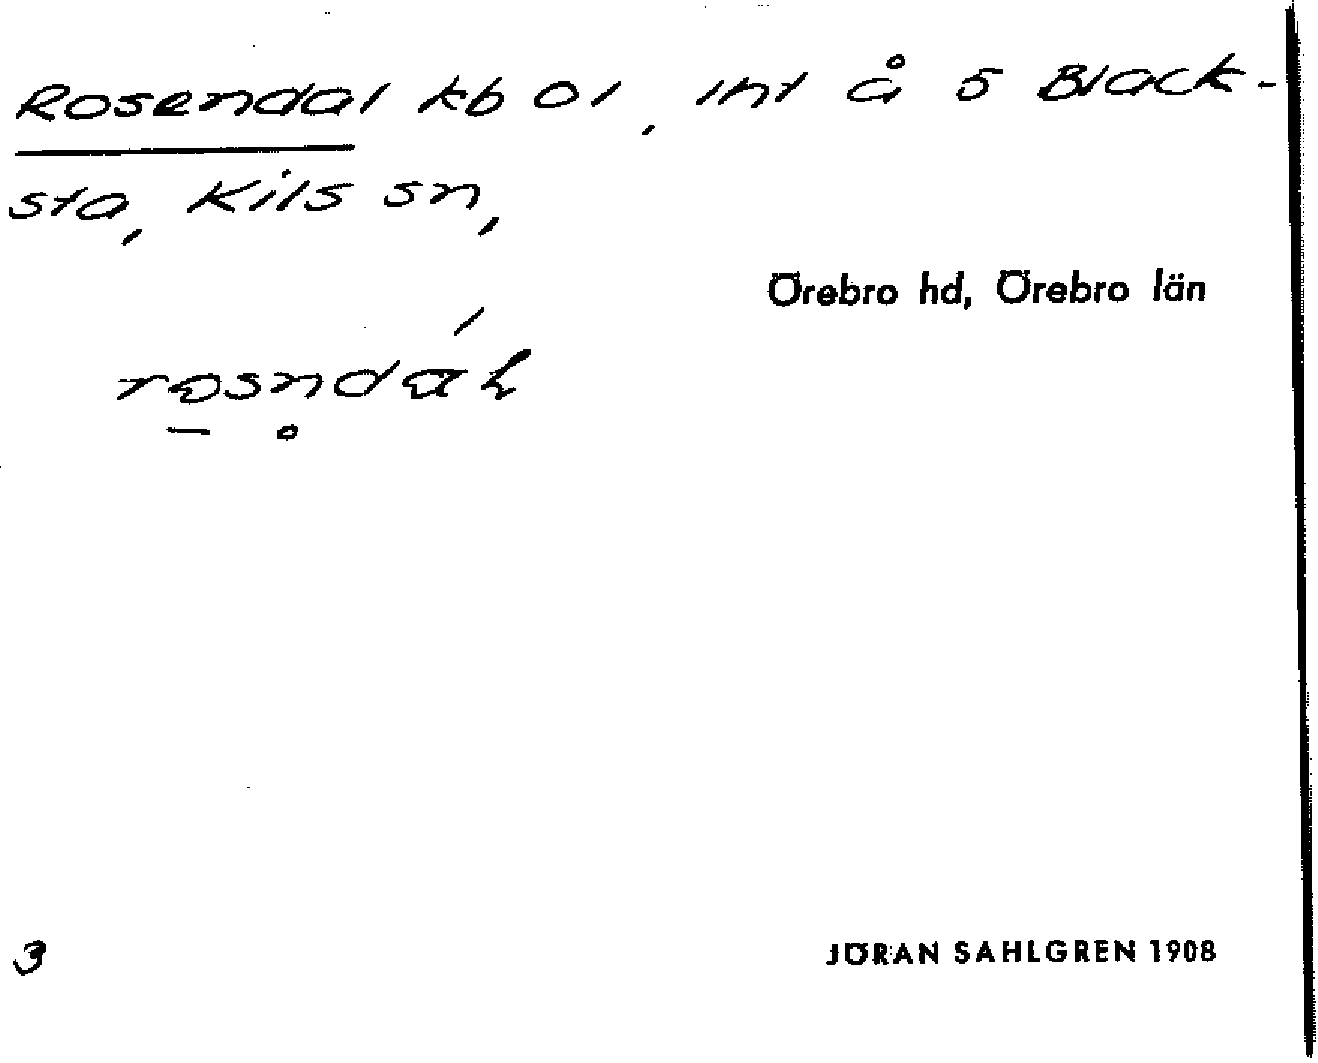 Rosendal kb 01, int å 5 Black-
sta, Kils sn,
Örebro hd, Örebro län
3
JÖRAN SAHLGREN 1908